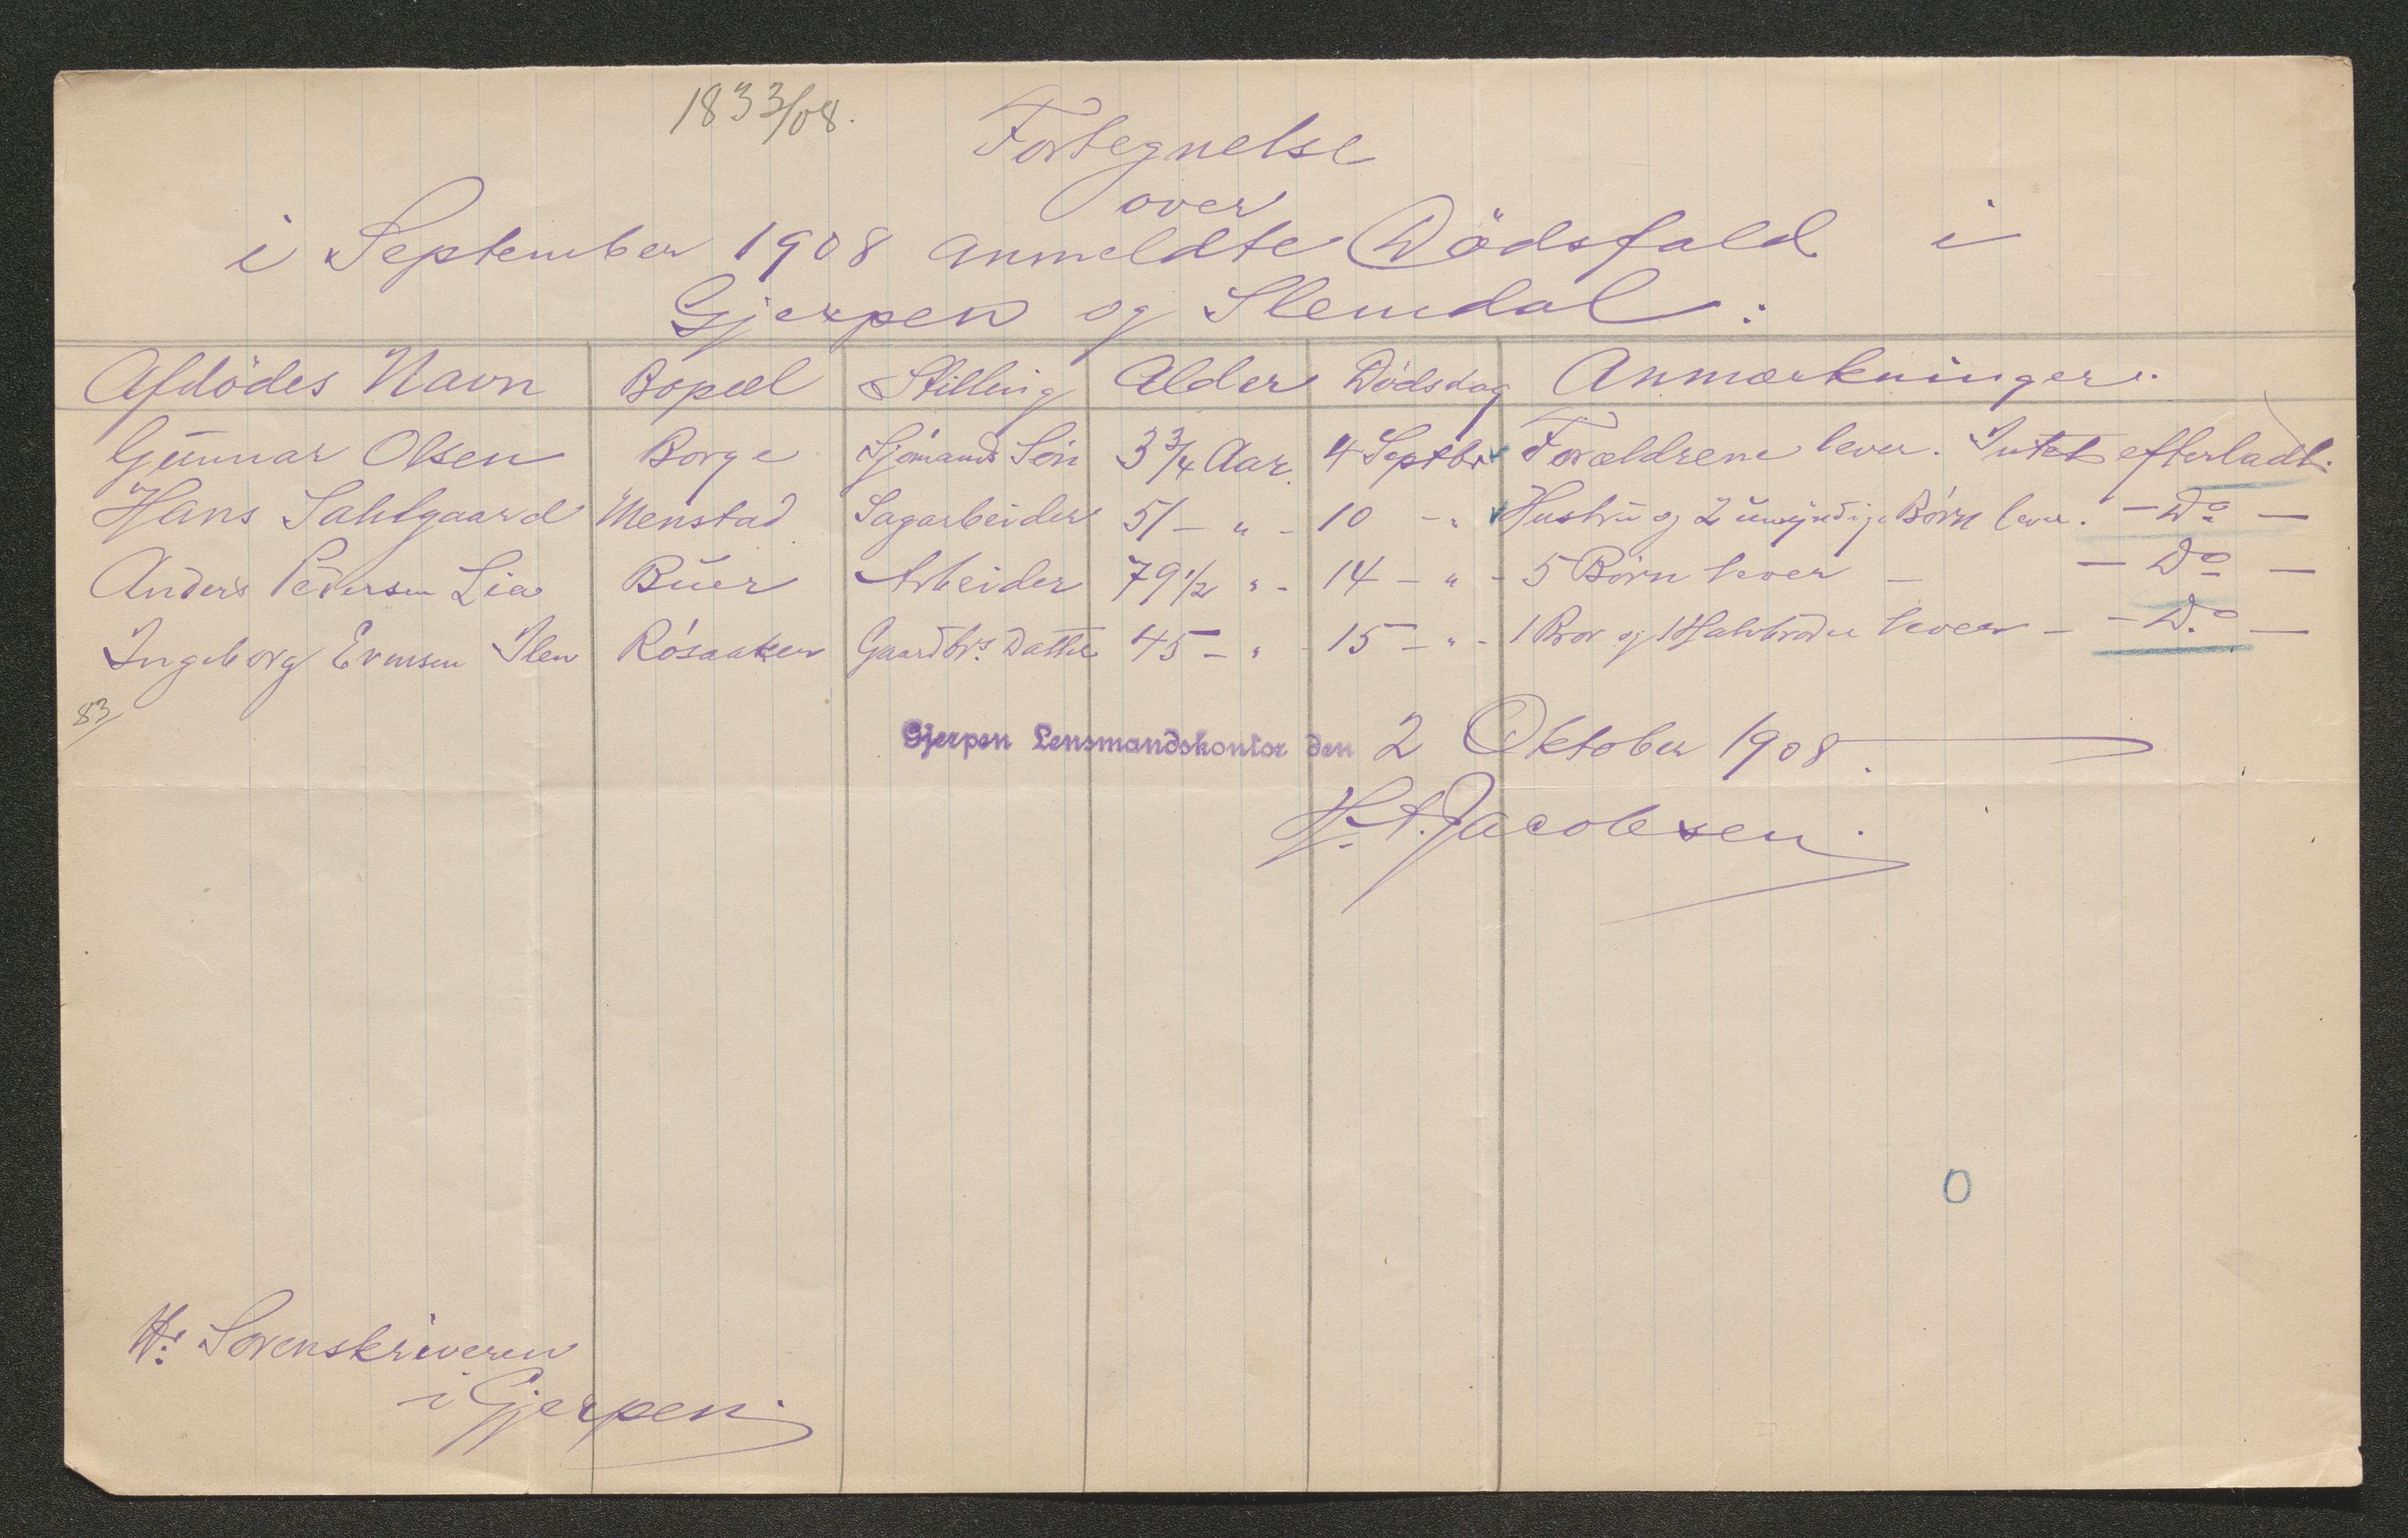 1833/08.
Fortegnelse
over
i September 1908 anmeldte Dödsfald i
Gjerpen og Slemdal:
Afdödes Navn Bopæl Stilling Alder Dödsdag Anmærkninger.
Gunnar Olsen Borge Sjömands Sön 3 3/4 Aar. 4 Septbr Forældrene lever. Intet efterladt.
Hans Sahlgaard Menstad Sagarbeider 51 - " - 10 - " Hustru og 2 umyndige Börn lever. - Do -
Anders Pedersen Lia Buer Arbeider 79 1/2 " - 14 - " - 5 Börn lever - - Do -
Ingeborg Evensen Ilen Rösaaken Gaardbrs. Datter 45 - " - 15 - " - 1 Bror og 1 Halvbroder lever - - Do. -
83/
Gjerpen Lensmandskontor den 2 Oktober 1908.
H. A. Jacobsen.
Hr. Sorenskriveren
i Gjerpen.
0